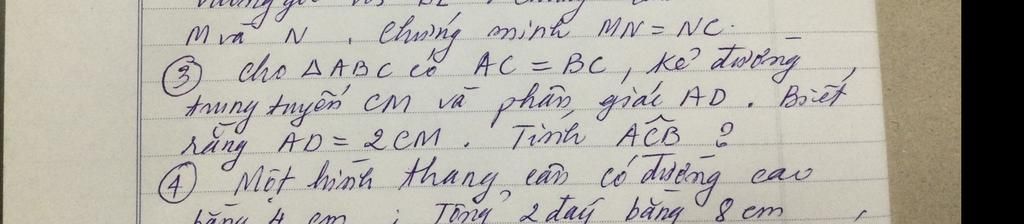 vuông góc với
M và N . Chứng minh MN = NC.
③ Cho △ABC có AC = BC, Kẻ đường
trung tuyến CM và phân giác AD . Biết
rằng AD = 2CM . Tính ACB ?
④ Một hình thang cân có đường cao
bằng 4 cm ; Tổng 2 đáy bằng 8 cm ,